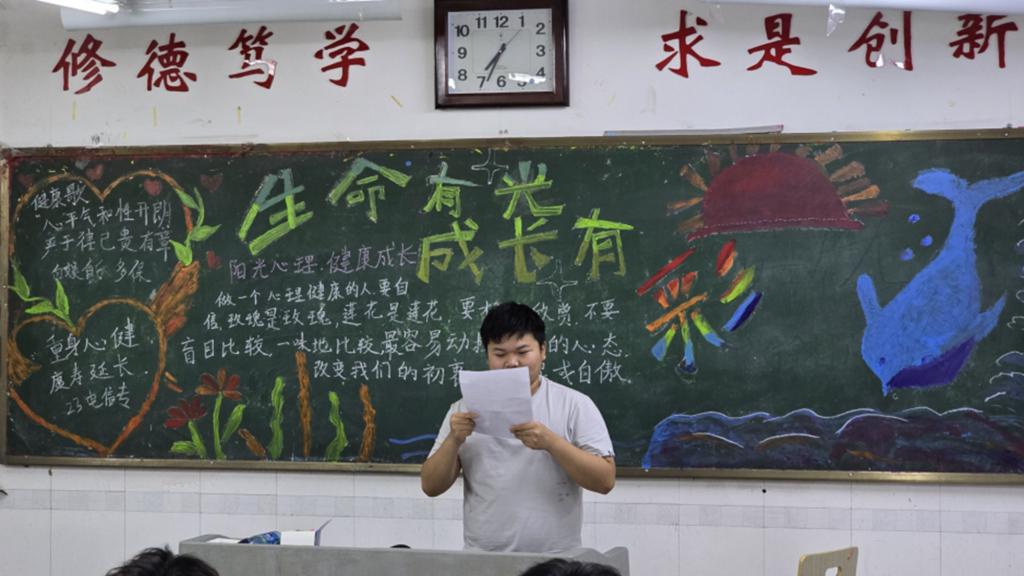 修德笃学
求是创新
11 12 1
10 2
9 3
8 4
7 6
生命有光
成长有
健康歌
心平气和性开朗
阳光心理.健康成长
做一个心理健康的人要自
信,玫瑰是玫瑰,莲花是莲花,要
赏.不要
盲目比较,一味地比较最容易动
的人.态.
改变我们的初
自傲.
童身心健
康寿延长.
23电信专